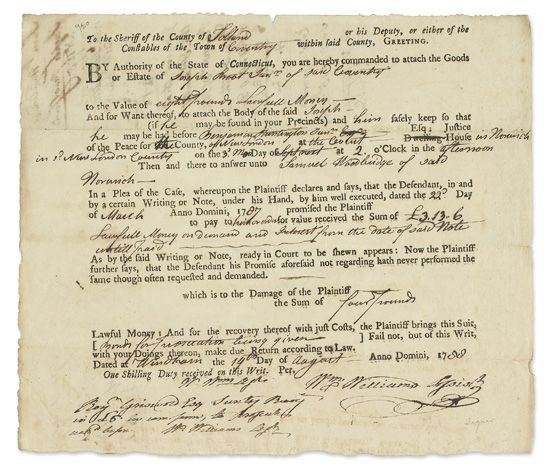 To the Sheriff of the County of Tolland or his Deputy, or either of the
Constables of the Town of Coventry within said County, GREETING.
BY Authority of the State of Connecticut, you are hereby commanded to attach the Goods
or Estate of Joseph Root Junr. of said Coventry
to the Value of eight pounds Lawfull Money
And for Want thereof, to attach the Body of the said Joseph
(if he may be found in your Precincts) and him safely keep so that
he may be had before Benjamin Huntington Junr. Esq; Justice
of the Peace for the County, of New London at the Court Dwelling-House in Norwich
in sd. New London County on the 3d. Day of Sept. next at 2 o'Clock in the afternoon
Then and there to answer unto Samuel Woodbridge of said
Norwich
In a Plea of the Case, whereupon the Plaintiff declares and says, that the Defendant, in and
by a certain Writing or Note, under his Hand, by him well executed, dated the 22d. Day
of March Anno Domini, 1787 promised the Plaintiff
to pay to for value received the Sum of £3.13.6
Lawfull Money on demand and Interest from the date of said Note
untill paid
As by the said Writing or Note, ready in Court to be shewn appears: Now the Plaintiff
further says, that the Defendant his Promise aforesaid not regarding hath never performed the
same though often requested and demanded.
which is to the Damage of the Plaintiff
the Sum of four pounds
Lawful Money: And for the recovery thereof with just Costs, the Plaintiff brings this Suit,
[ Bonds for Prosecution being given ] Fail not, but of this Writ,
with your Doings thereon, make due Return according to Law.
Dated at Windham the 14th Day of August Anno Domini, 1788
One Shilling Duty received on this Writ. Per,
Wm. Williams Assist.
Griswold Esq
Wm. Williams